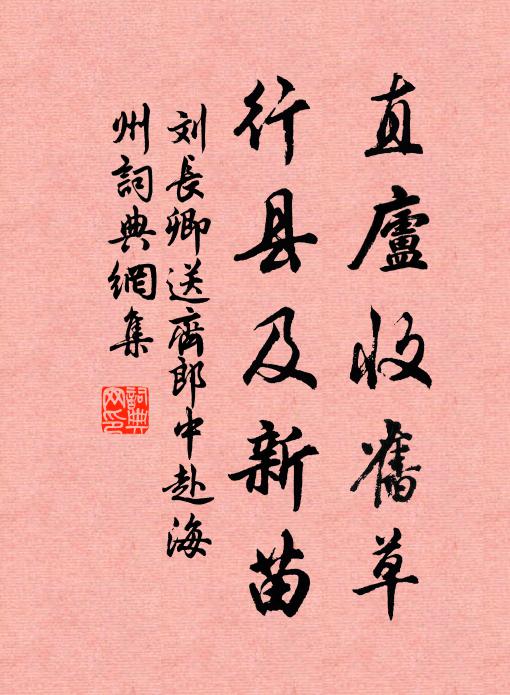 直廬收舊草
行县及新苗
刘長卿送齊郎中赴海
州詞典網集
詞典
网印